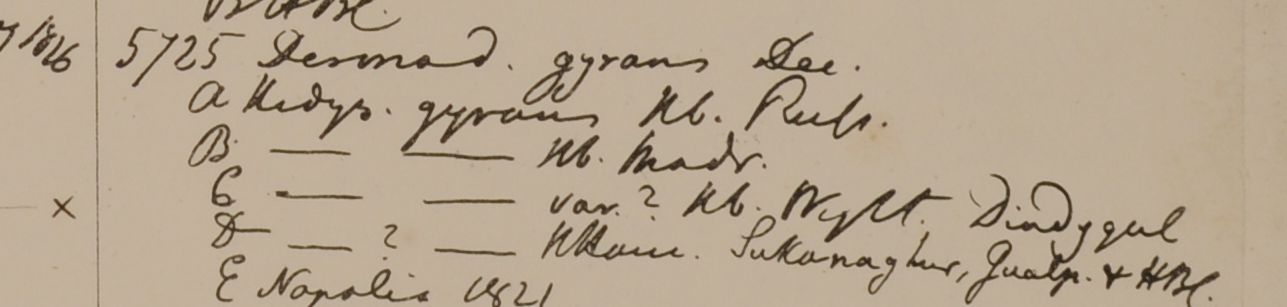 1826
5725 Desmod. gyrans Dec.
A Hedys. gyrans Hb. Russ.
B — — Hb. Madr.
C — — var.? Hb. Wight. Dindygul
× D — ? — HHam. Sukanaghur, Gualp. & HBC.
E Napalia 1821